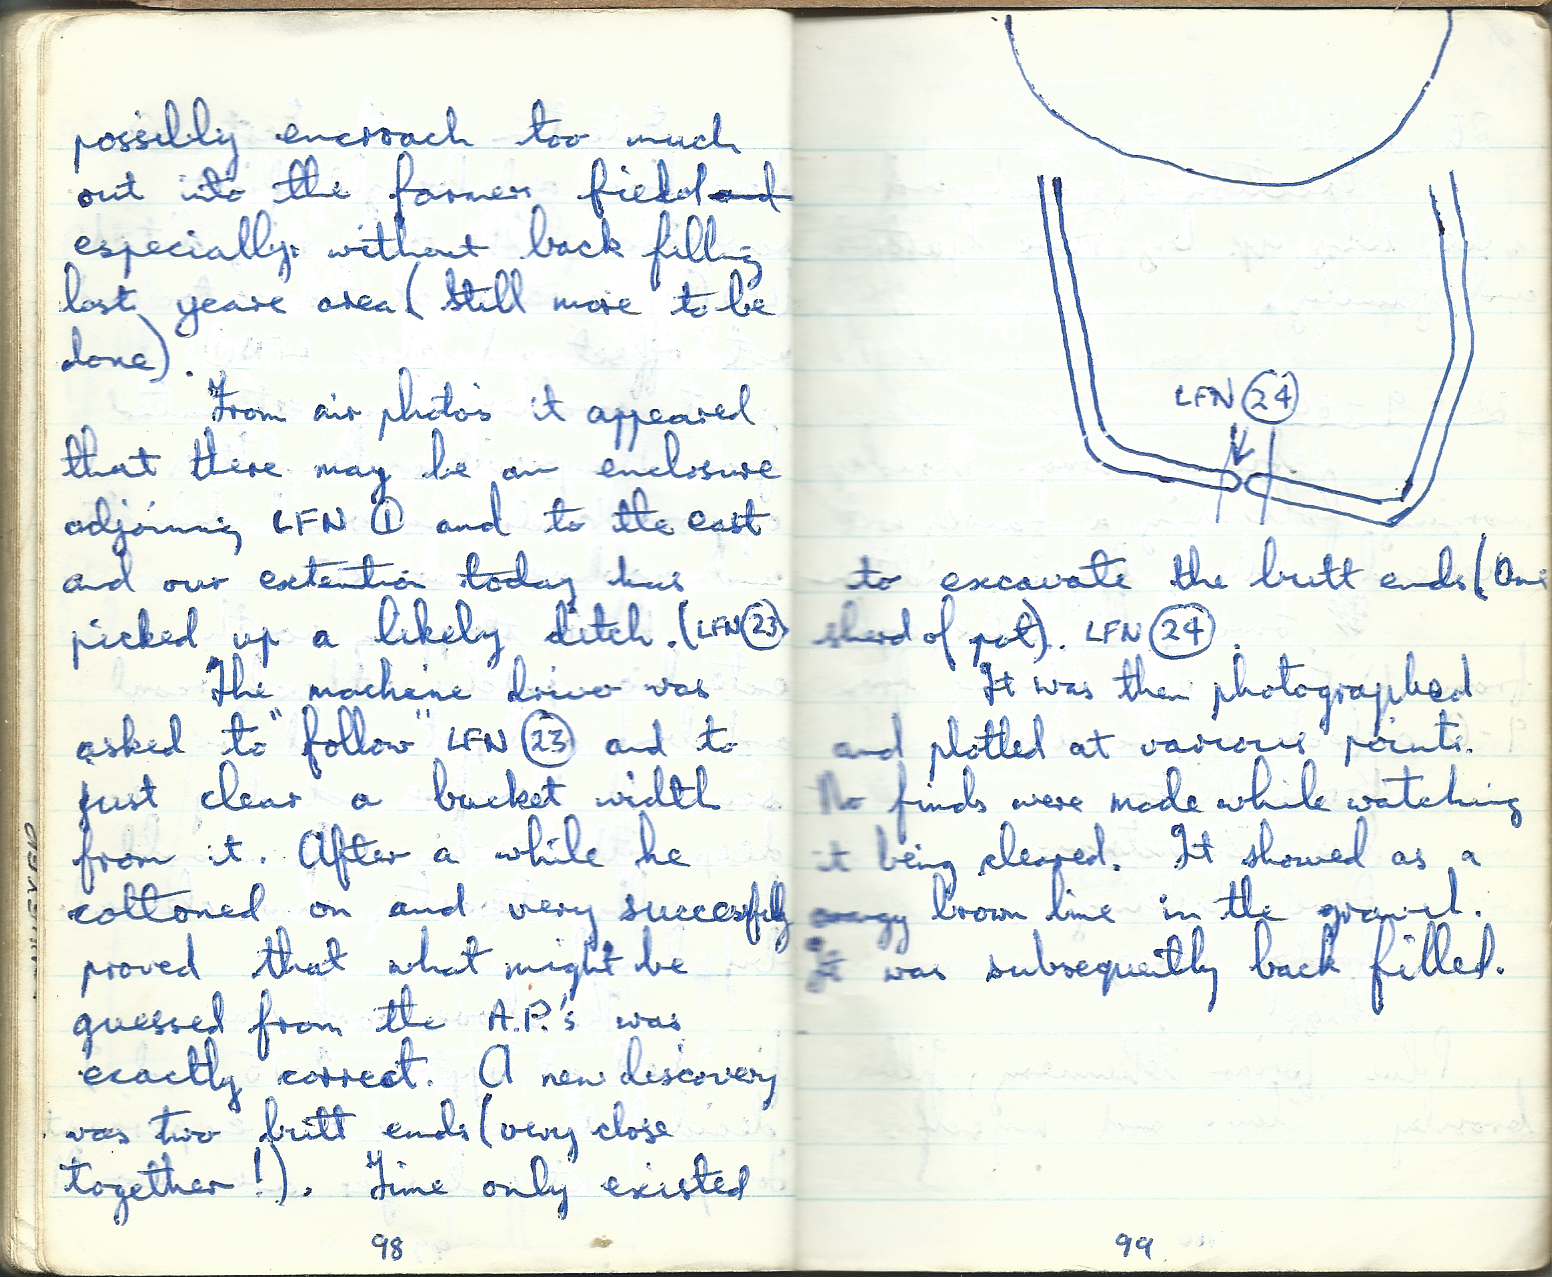 possibly encroach too much
out into the farmers field and
especially without back filling
last years area (still more to be
done).
From air photo's it appeared
that there may be an enclosure
adjoining LFN ① and to the east
and our extention today has
picked up a likely ditch. (LFN 23)
The machine driver was
asked to "follow" LFN 23 and to
just clear a bucket width
from it. After a while he
cottoned on and very successfully
proved that what might be
guessed from the A.P.'s was
exactly correct. A new discovery
was two butt ends (very close
together!). Time only existed
98
LFN 24
to excavate the butt ends (One
sherd of pot). LFN 24.
It was then photographed
and plotted at various points.
No finds were made while watching
it being cleared. It showed as a
orangy brown line in the gravel.
It was subsequently back filled.
99